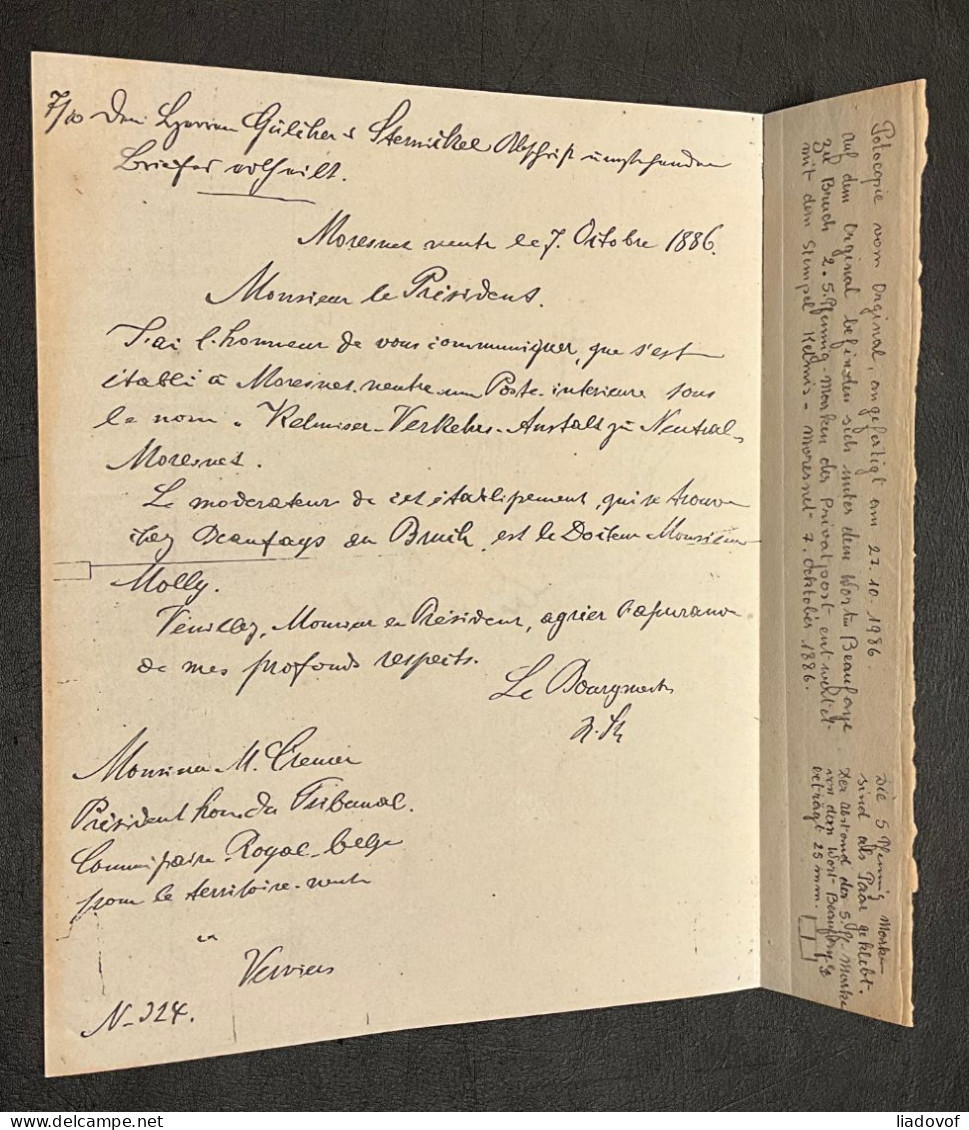 7/10 Den Herren Gülcher & Sternickel Abschrift umstehenden
Briefes ertheilt.
Moresnet neutre le 7. Octobre 1886.
Monsieur le Président.
J'ai l'honneur de vous communiquer, que s'est
établi à Moresnet neutre une Poste intérieure sous
le nom „ Kelmiser-Verkehrs-Anstalt zu Neutral-
Moresnet.
Le moderateur de cet établissement, qui se trouve
chez Beaufays au Bruch, est le Docteur Monsieur
Molly.
Veuillez, Monsieur le Président, agréer l'assurance
de mes profonds respects.
Le Bourgmestre
Monsieur M. Cremer
Président hon. du Tribunal.
Commissaire-Royal-belge
pour le territoire-neutre
Verviers
N-324.
Potocopie vom Orginal, angefertigt am 27.10.1986.
auf dem Orginal befinden sich unter dem Worten Beaufaye
zu Bruch 2. 5. Pfennig-Marken der Privatpost entwertet
mit dem Stempel Kelmis-Moresnet 7. Oktober 1886.
Die 5 Pfennig Marken
sind als Paar geklebt.
Der abstand der 5. Pf. Marke
von dem Wort Beaufays
beträgt 25 mm.
liadovof